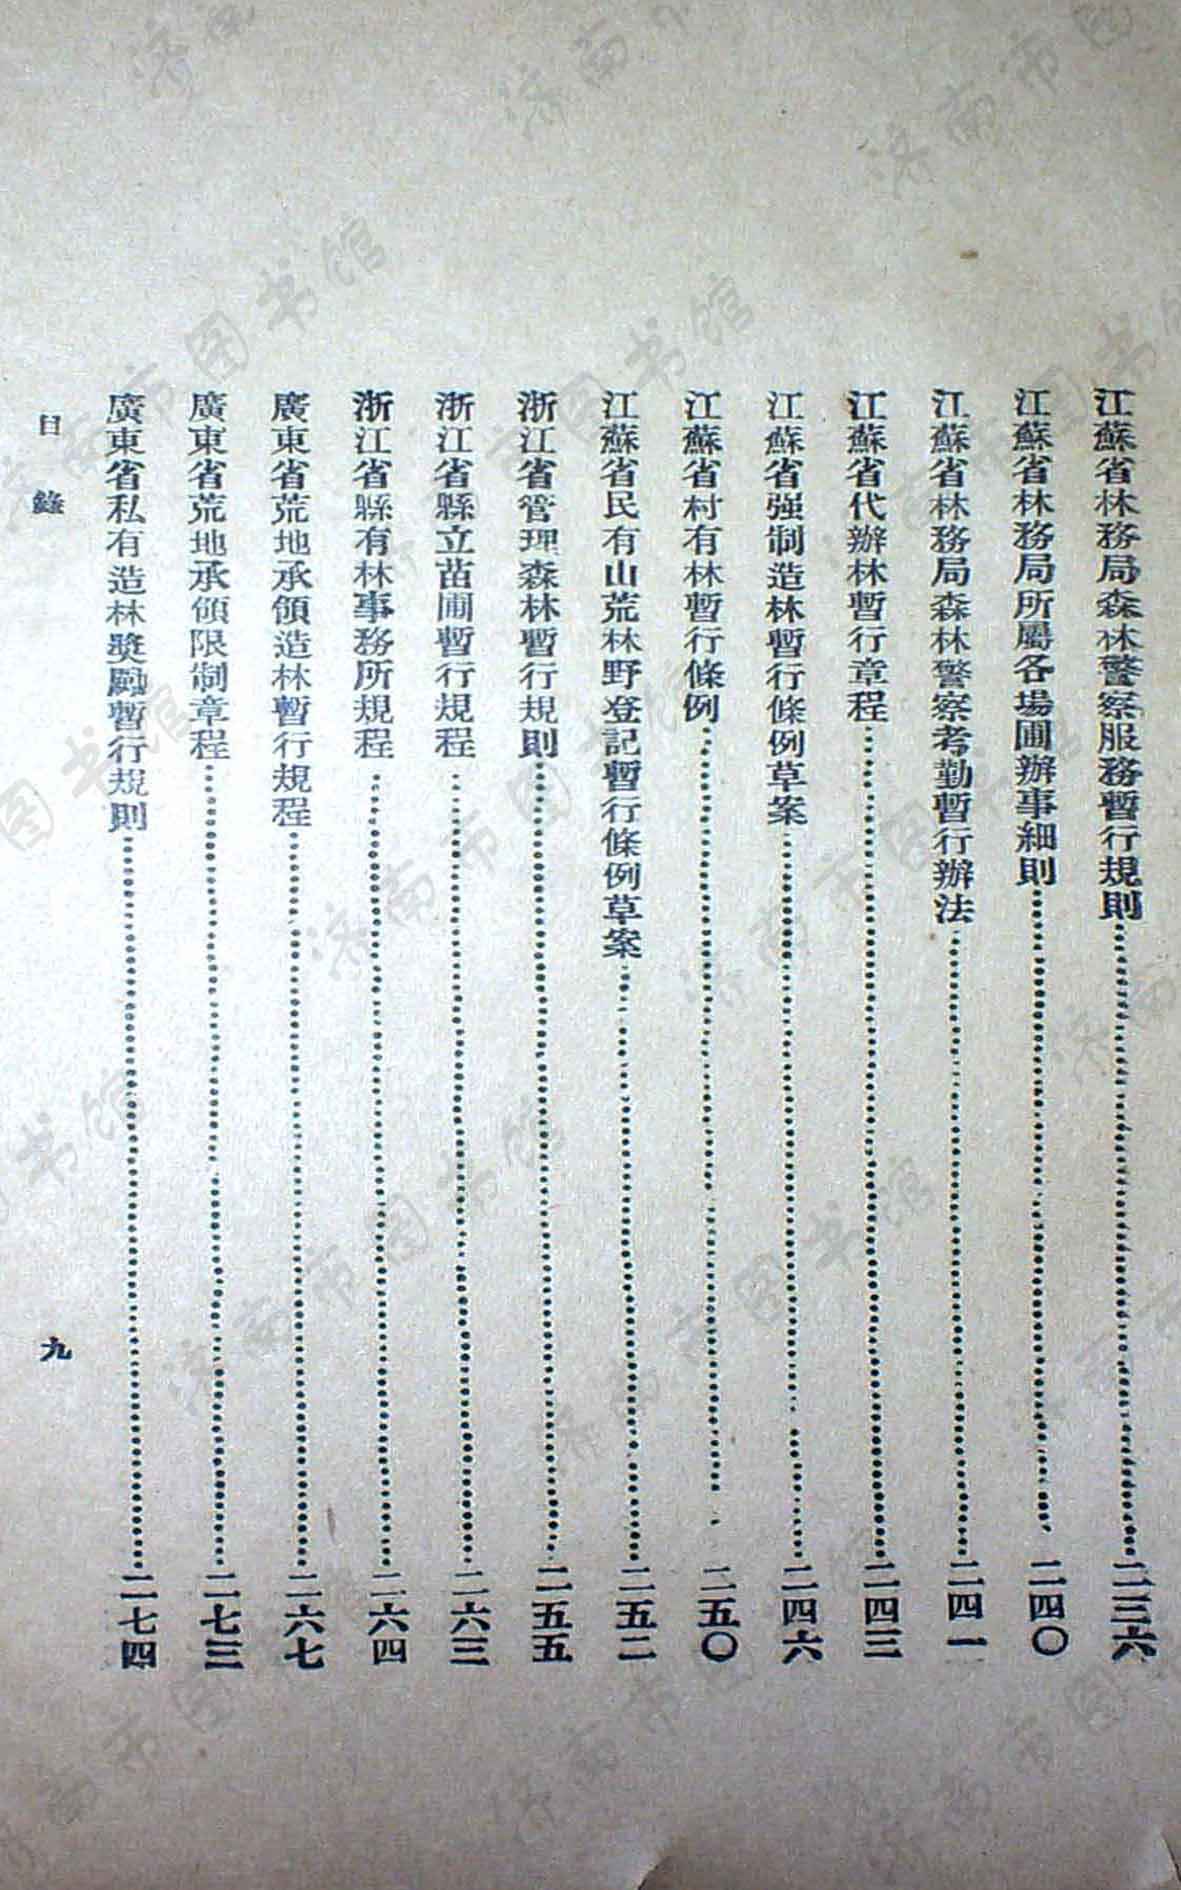 江蘇省林務局森林警察服務暫行規則……二三六
江蘇省林務局所屬各場圃辦事細則……二四〇
江蘇省林務局森林警察考勤暫行辦法……二四一
江蘇省代辦林暫行章程……二四三
江蘇省强制造林暫行條例草案……二四六
江蘇省村有林暫行條例……二五〇
江蘇省民有山荒林野登記暫行條例草案……二五二
浙江省管理森林暫行規則……二五五
浙江省縣立苗圃暫行規程……二六三
浙江省縣有林事務所規程……二六四
廣東省荒地承領造林暫行規程……二六七
廣東省荒地承領限制章程……二七三
廣東省私有造林獎勵暫行規則……二七四
目錄
九
济南市图书馆